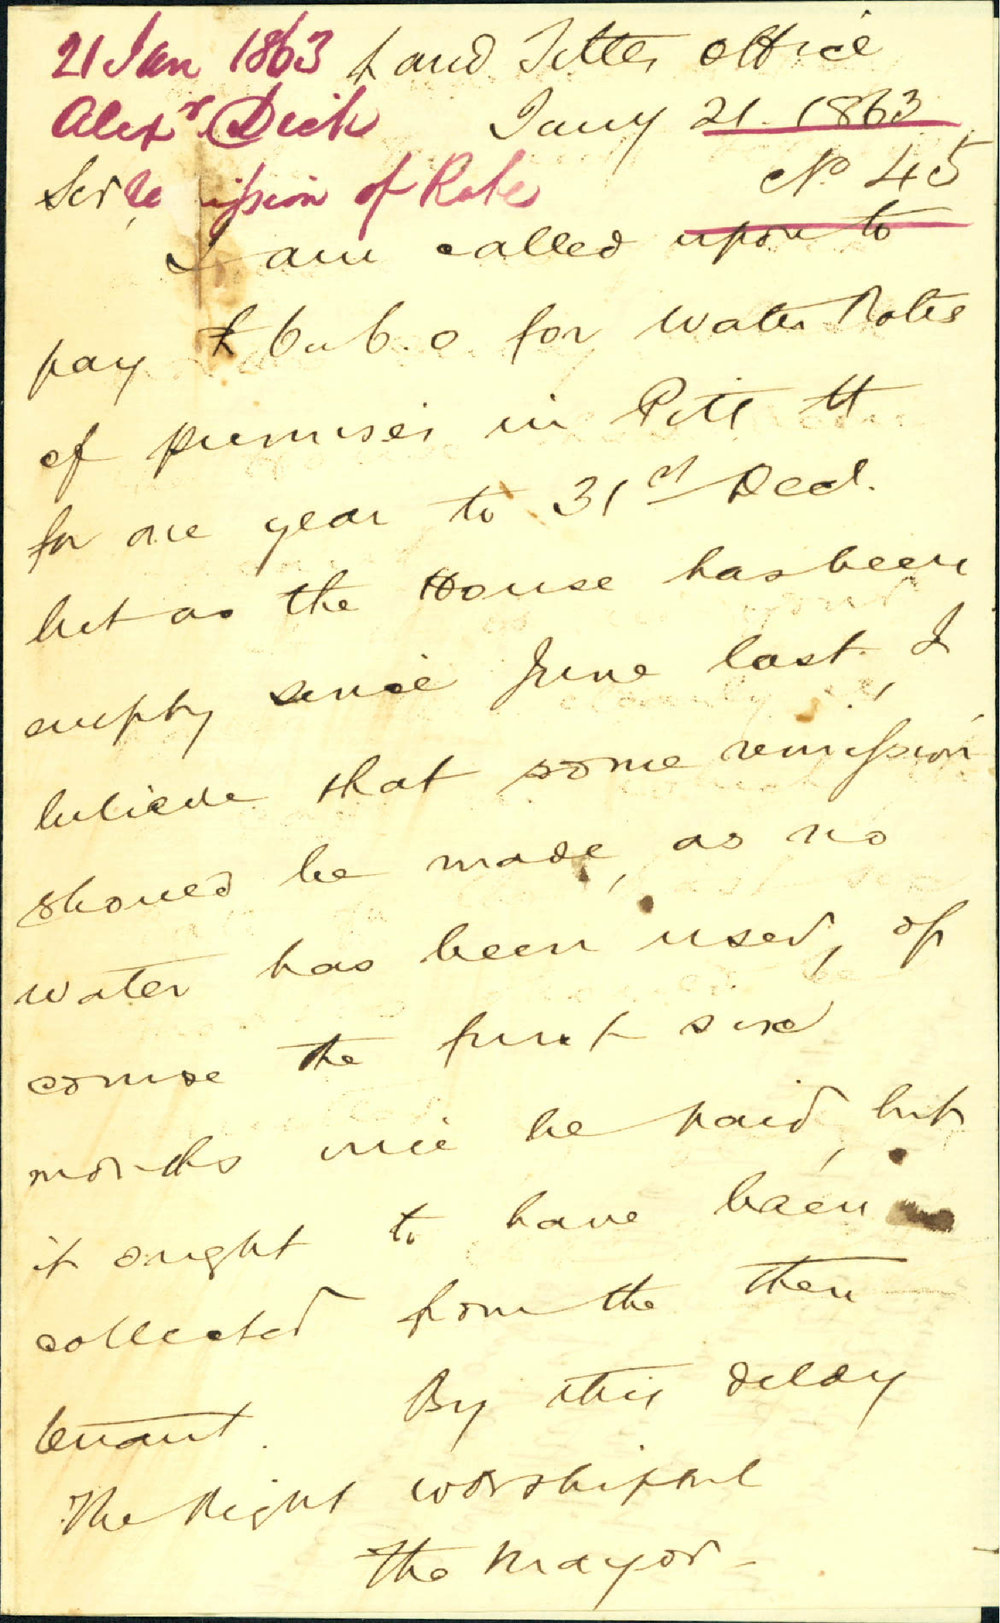 21 Jan 1863 Land Titles Office
Alexr Dick Jany 21. 1863
Sir, re mission of Rates No 45
I am called upon to
pay £6 . 6 . 0 for Water Rates
of premises in Pitt St
for one year to 31st Decr.
but as the House has been
empty since June last, I
believe that some remission
should be made, as no
water has been used, of
course the first six
months will be paid, but
it ought to have been
collected from the then
tenant. By this delay
The Right Worshipful
The Mayor -